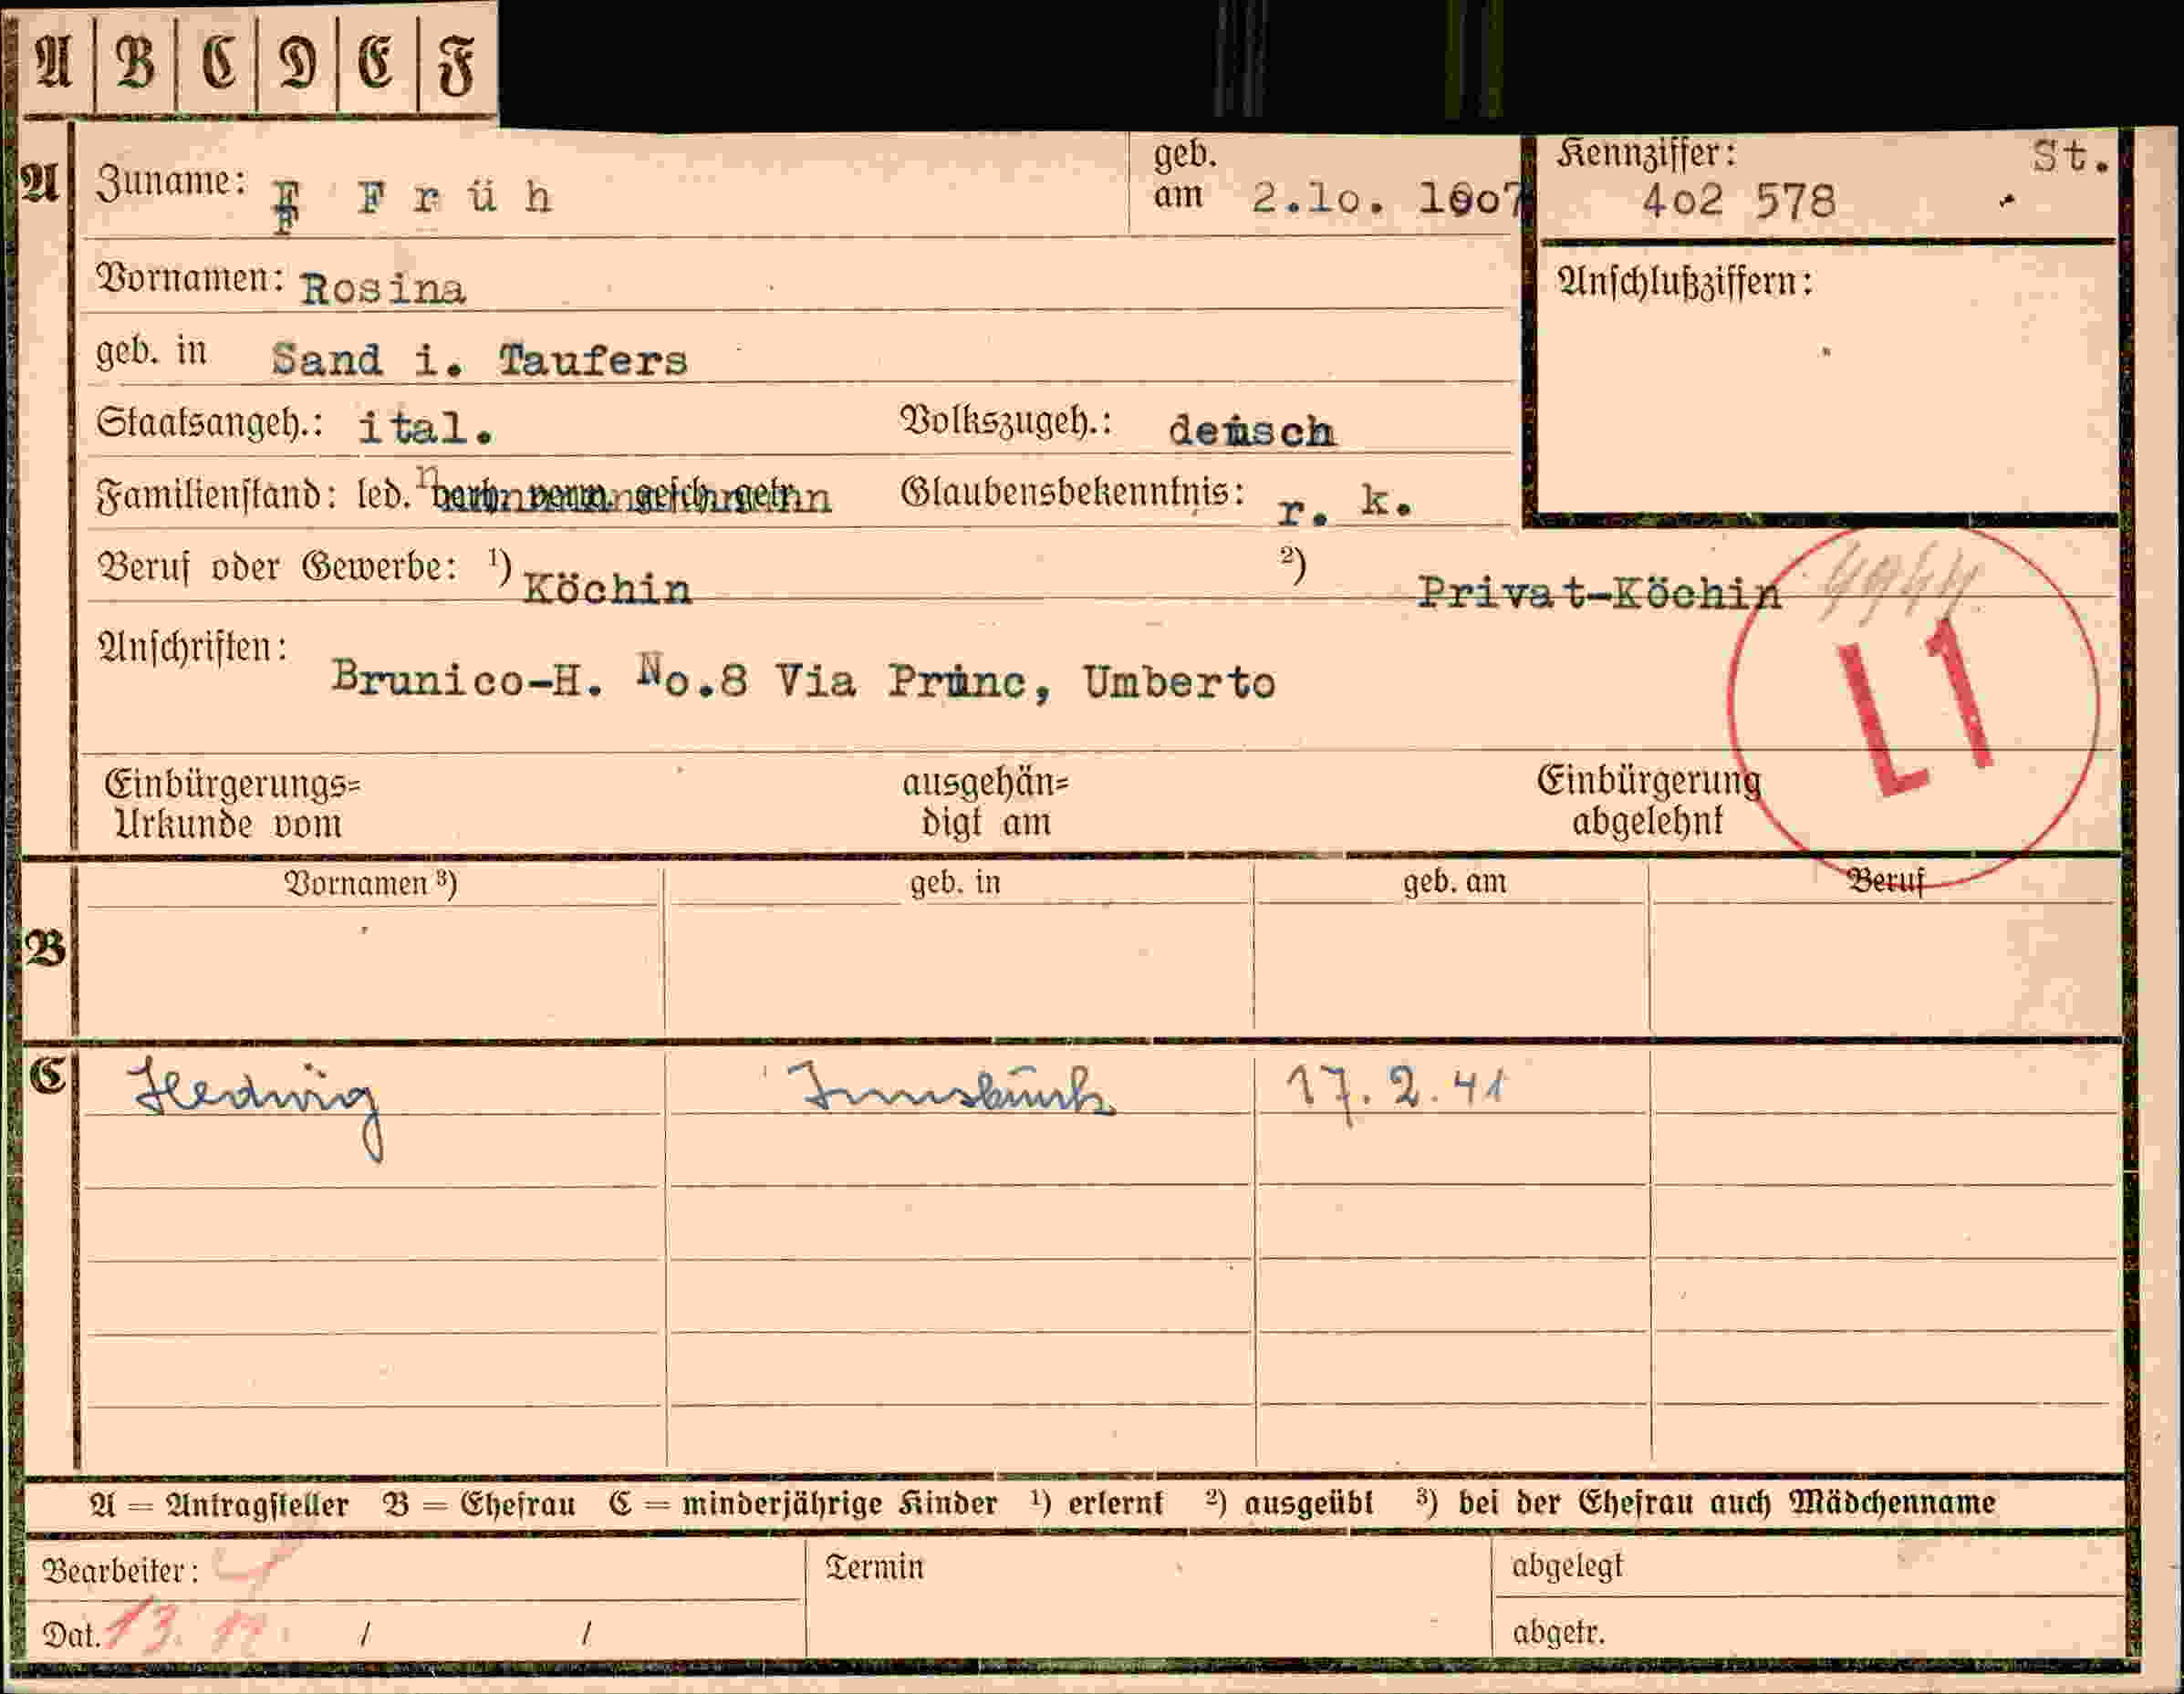 A B C D E F
A Zuname: F Früh geb. am 2.10. 1907 Kennziffer: 402 578 St.
Vornamen: Rosina Anschlußziffern:
geb. in Sand i. Taufers
Staatsangeh.: ital. Volkszugeh.: deutsch
Familienstand: led. Glaubensbekenntnis: r. k.
Beruf oder Gewerbe: 1) Köchin 2) Privat-Köchin
Anschriften: Brunico-H. No.8 Via Princ, Umberto
L1
Einbürgerungs= ausgehän= Einbürgerung
Urkunde vom digt am abgelehnt
Vornamen 3) geb. in geb. am Beruf
B
C Hedwig Innsbruck 17. 2. 41
A = Antragsteller B = Ehefrau C = minderjährige Kinder 1) erlernt 2) ausgeübt 3) bei der Ehefrau auch Mädchenname
Bearbeiter: Termin abgelegt
Dat. 13. / / abgetr.